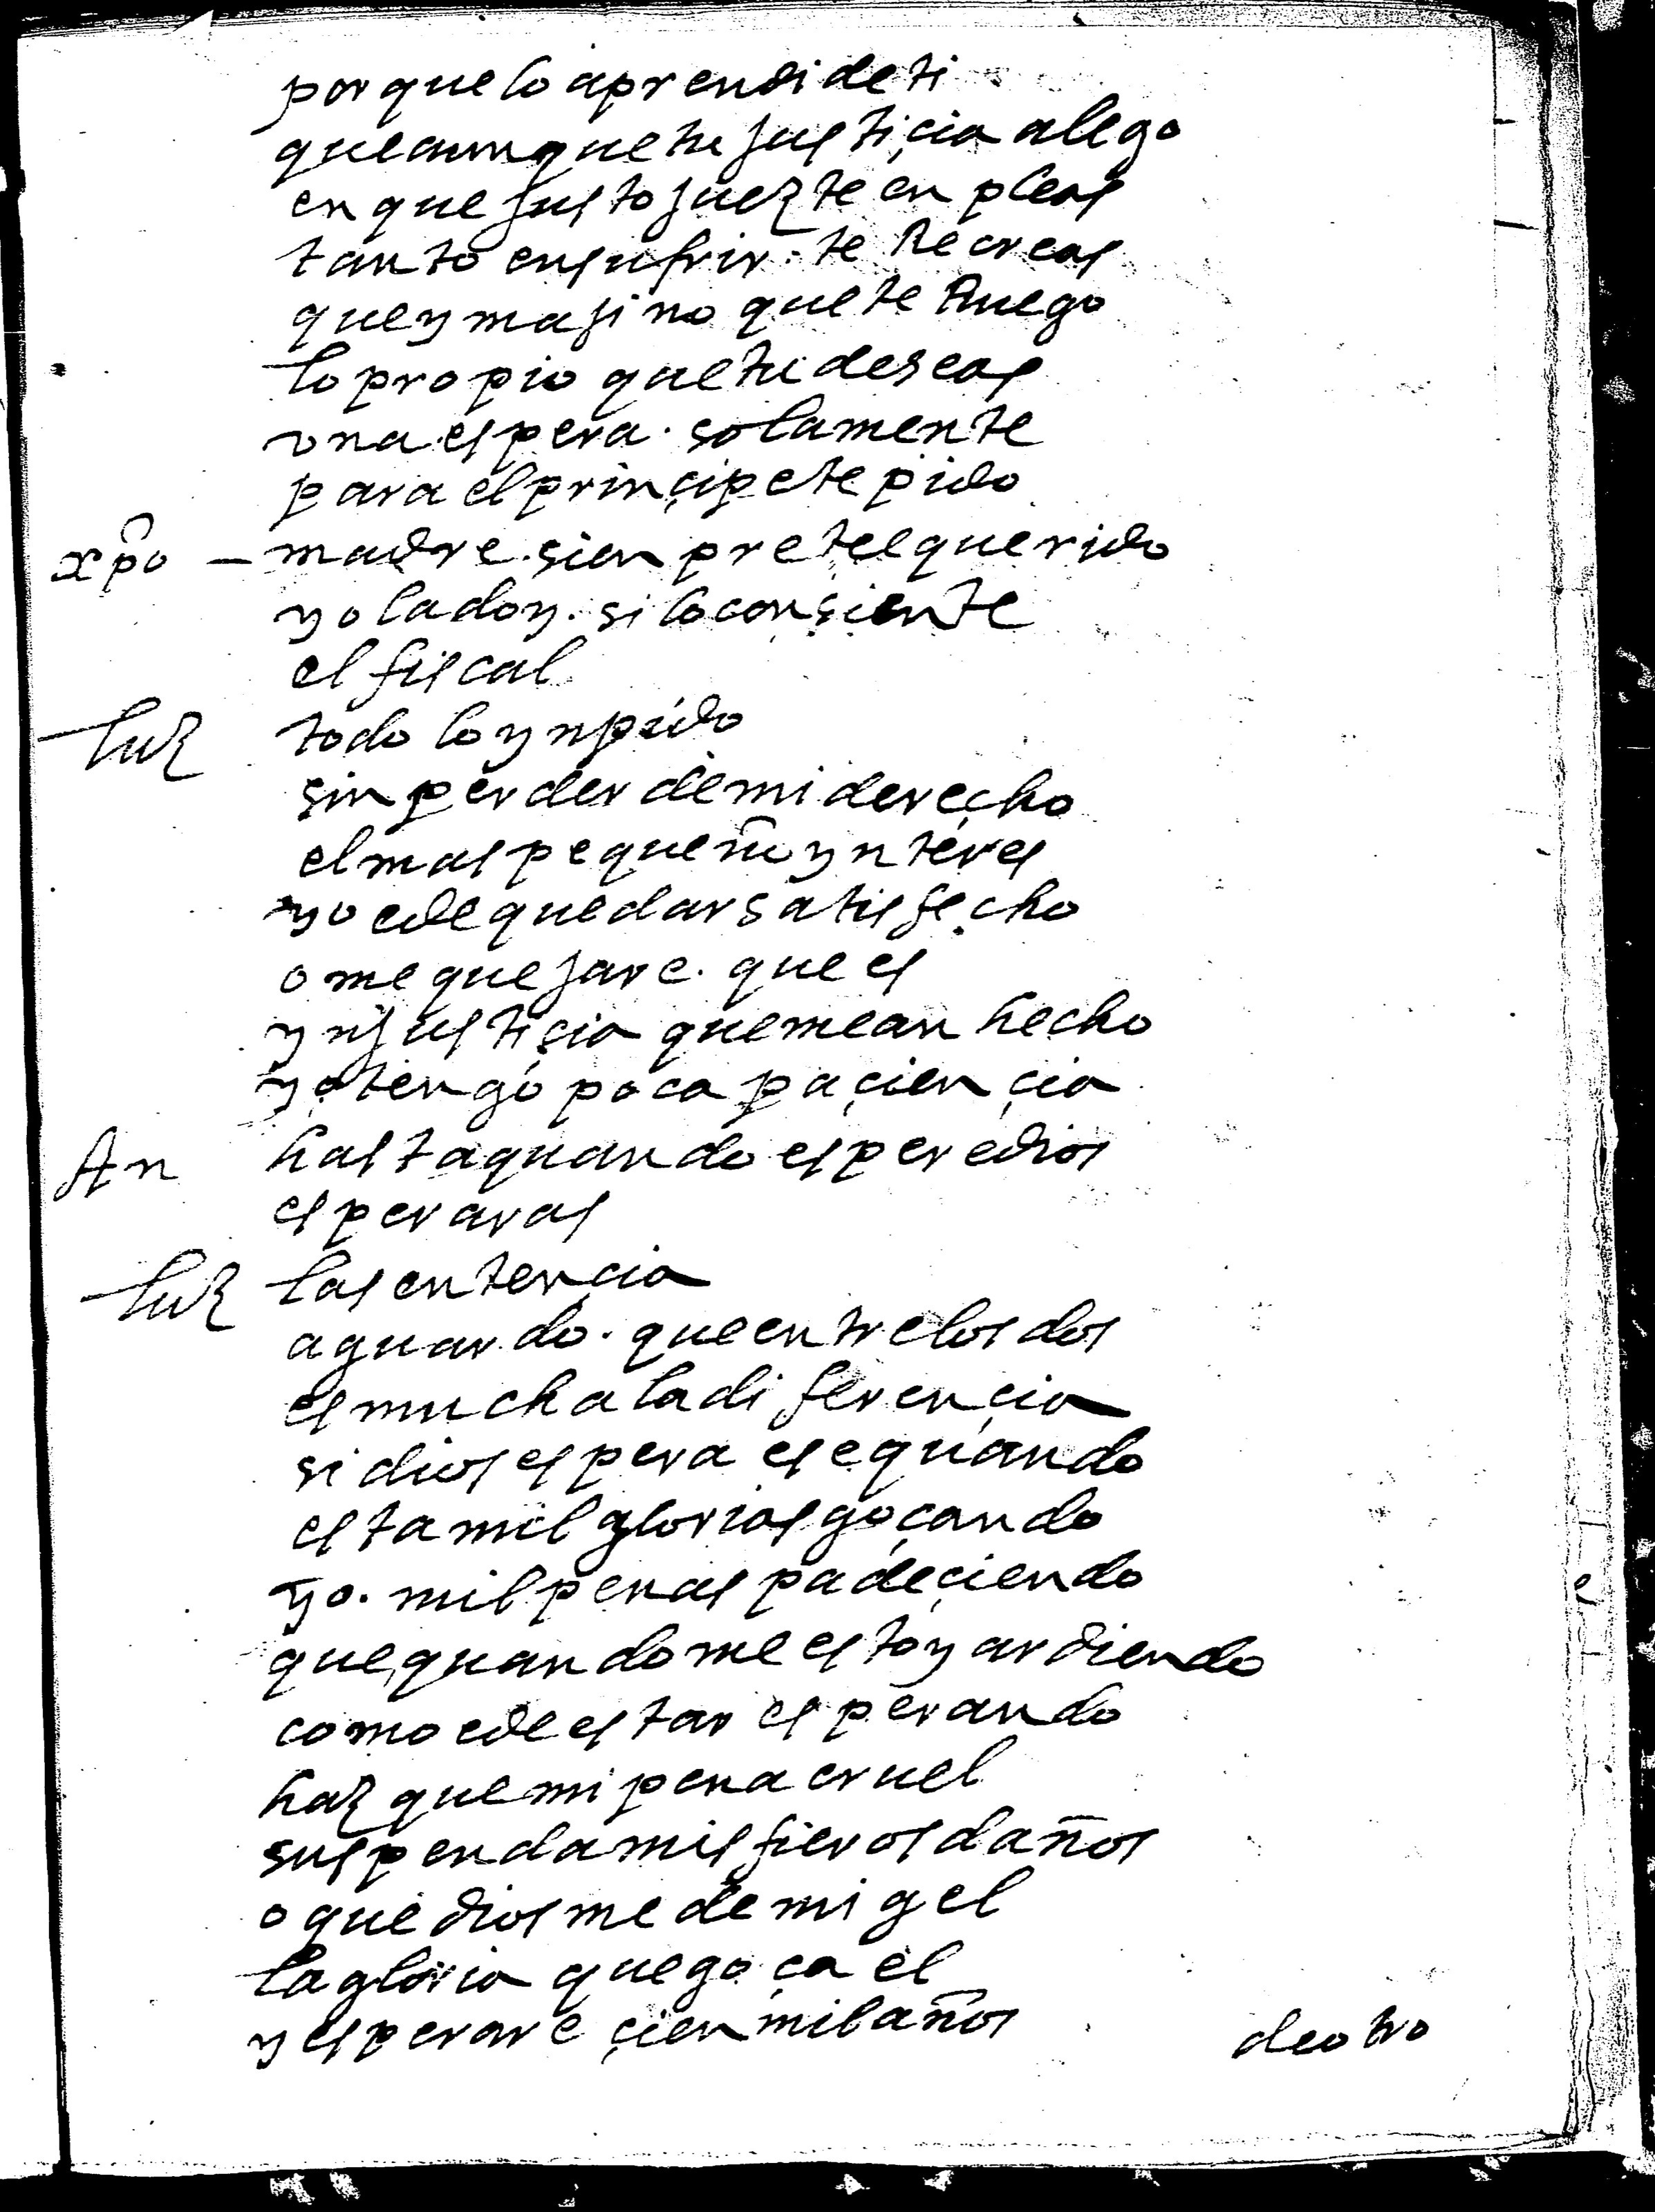 por que lo aprendi de ti
que aunque tu justiçia alego
en que justo juez te enpleas
tanto en sufrir. te Recreas
que ymajino que te Ruego
lo propio que tu deseas
vna espera. solamente
para el prinçipe te pido
xp̂o — madre. sienpre te e querido
yo la doy. si lo consiente
el fiscal
luz todo lo ynpido
sin perder de mi derecho
el mas pequeño ynteres
yo e de quedar satisfecho
o me quejare. que es
ynjustiçia que me an hecho
yo tengo poca paçiençia
An hasta quando espere dios
esperaras
luz la sentençia
aguardo. que entre los dos
es mucha la diferençia
si dios espera es e quando
esta mil glorias goçando
yo. mil penas padeçiendo
que quando me estoy ardiendo
como e de estar esperando
haz que mi pena cruel
suspenda mis fieros daños
o que dios me de migel
la gloria que goça el
y esperare çien mil años
de otro